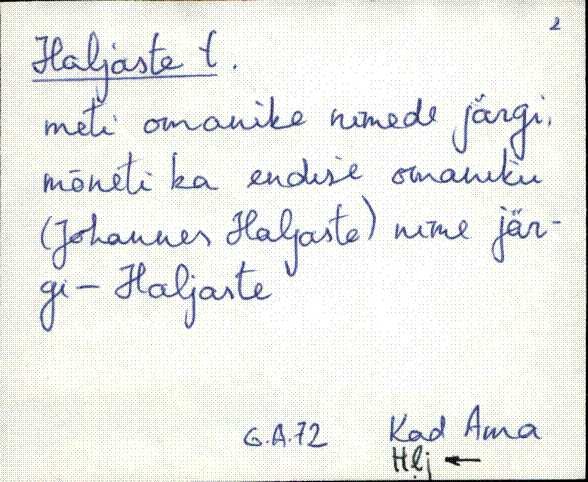 2
Haljaste t.
meti omanike nimede järgi,
mõneti ka endise omaniku
(Johannes Haljaste) nime jär-
gi – Haljaste
G.A.72 Kad Ama
Hlj ←